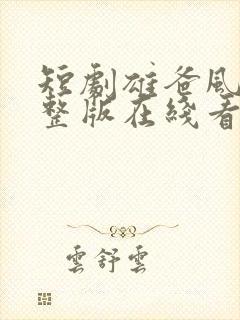 短劇雄爸風
整版在綫看
雲舒雲